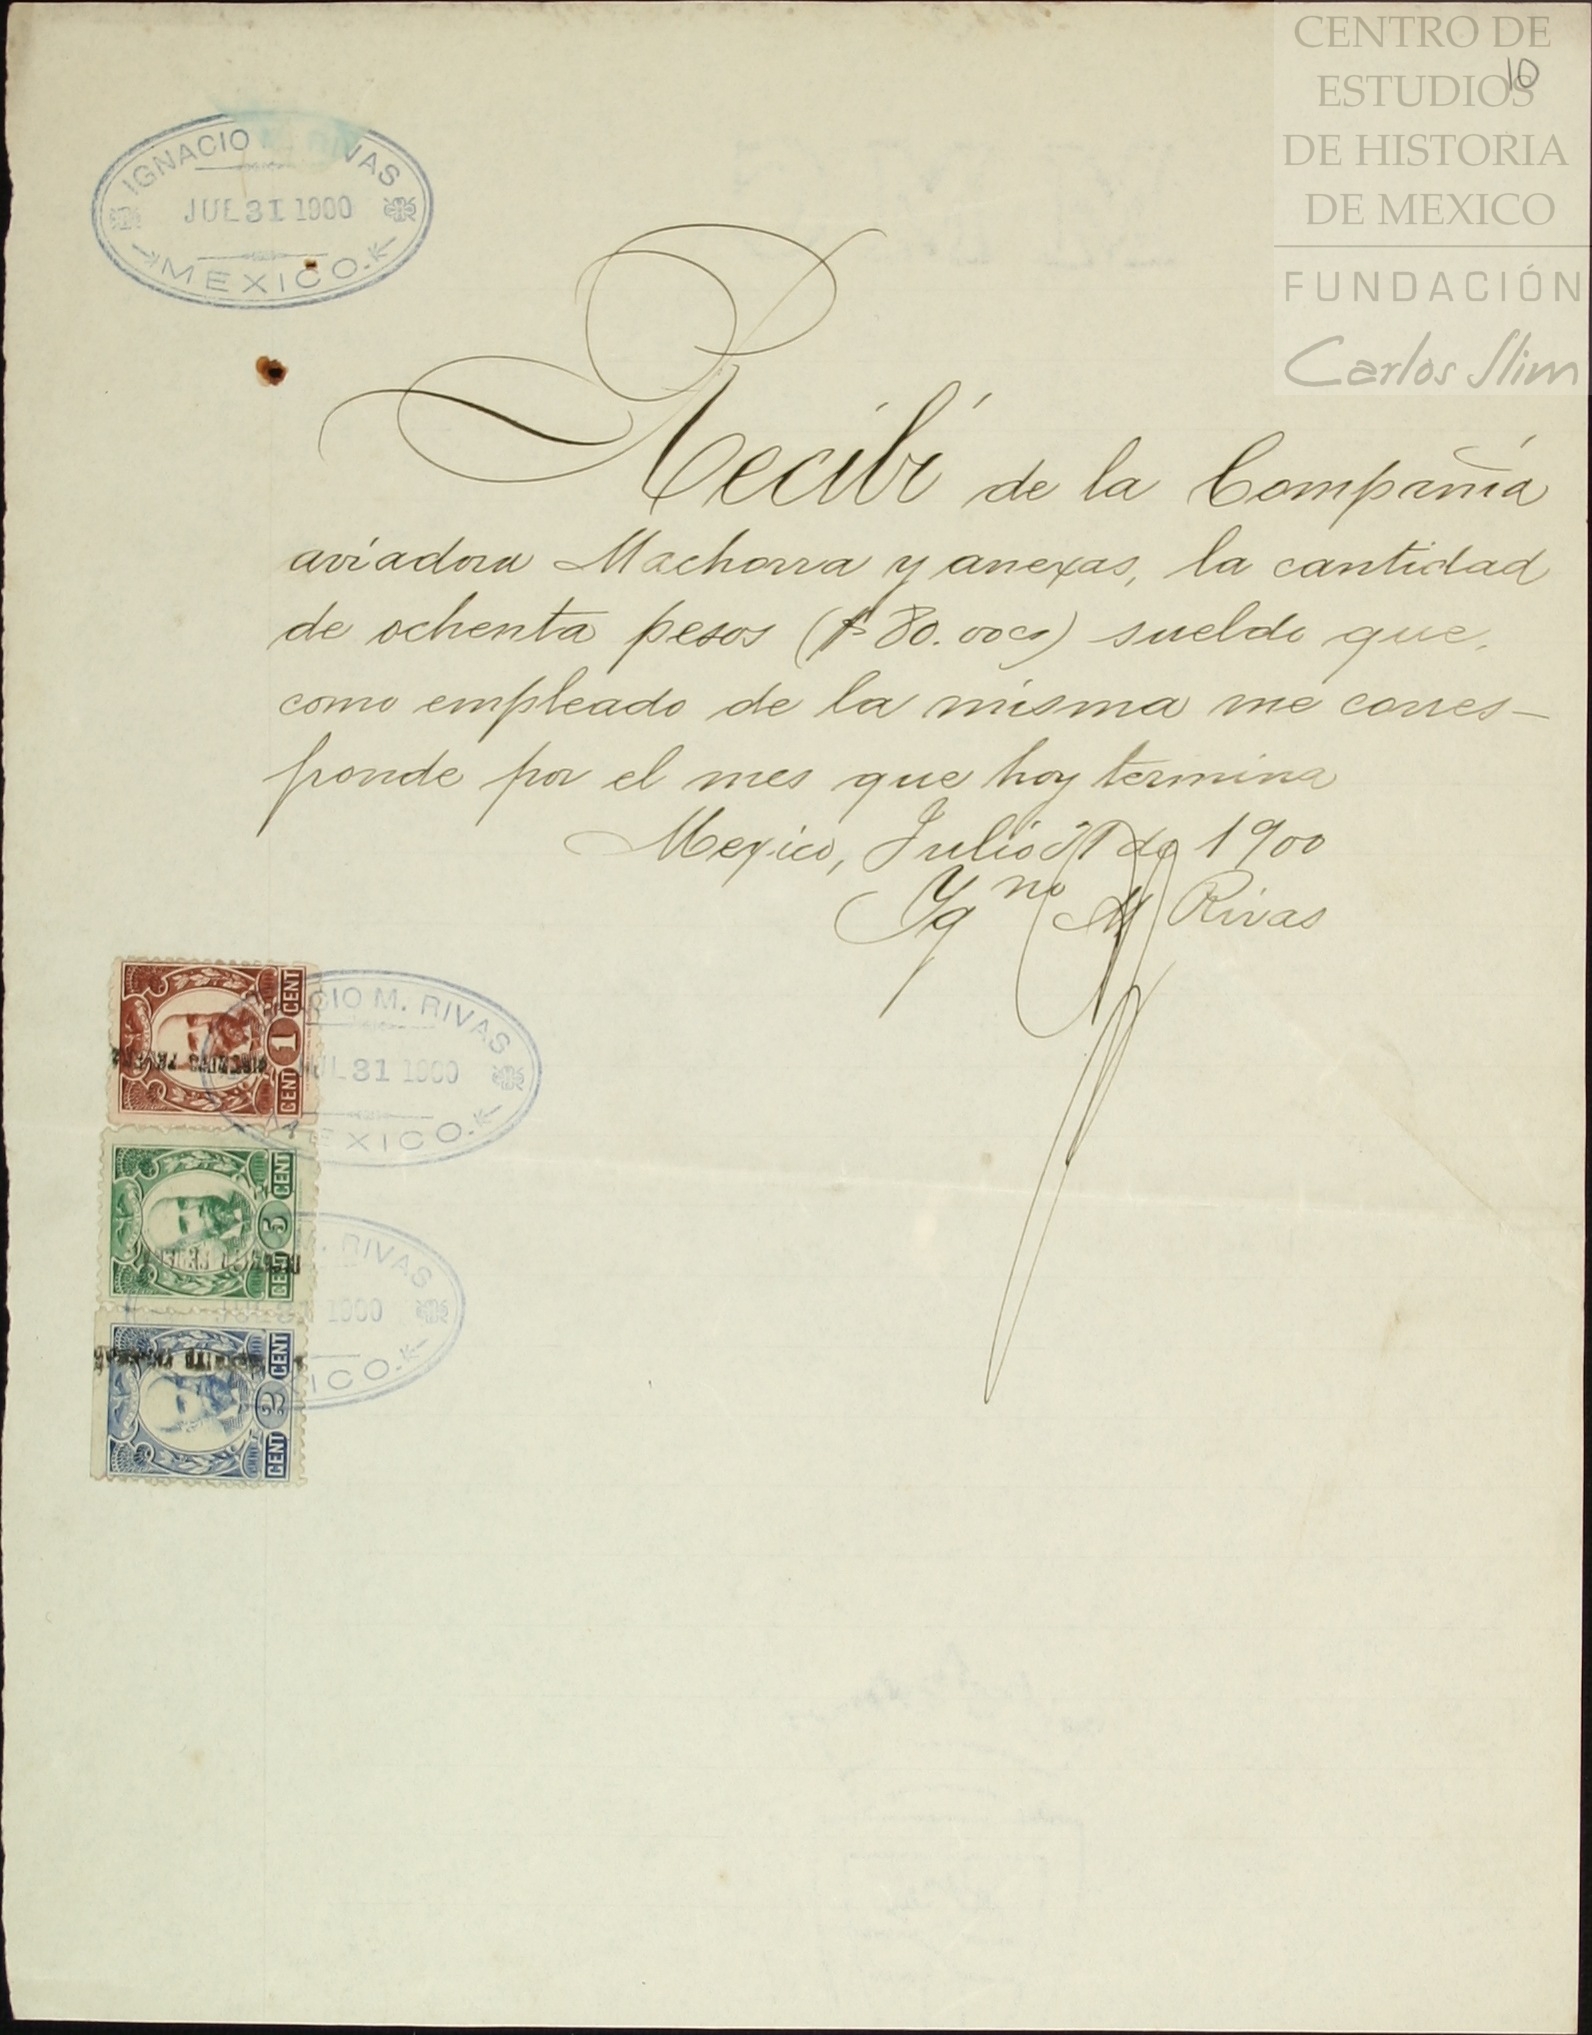 CENTRO DE
ESTUDIOS
DE HISTORIA
DE MEXICO
FUNDACIÓN
Carlos Slim
10
IGNACIO VAS
JUL 31 1900
MEXICO.
Recibí de la Compañía
aviadora Machorra y anexas, la cantidad
de ochenta pesos ($ 80.00cs) sueldo que,
como empleado de la misma me corres-
ponde por el mes que hoy termina
Mexico, Julio 31 de 1900
Ygno M Rivas
CENT 1 CENT
CIO M. RIVAS
JUL 31 1900
MEXICO.
CENT 5 CENT
RIVAS
JUL 31 1900
ICO.
CENT 2 CENT